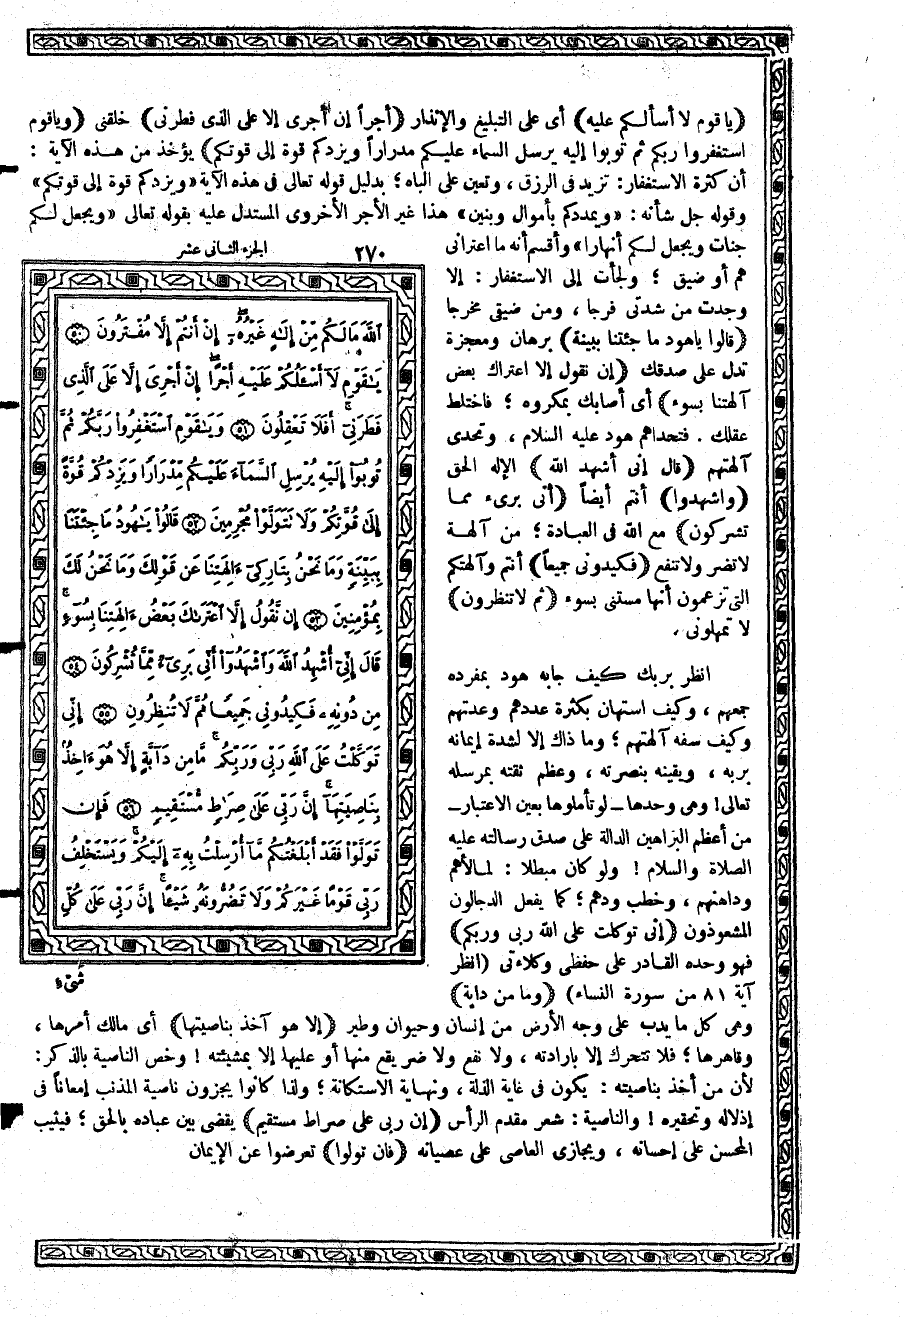 (ياقوم لا أسألكم عليه) أى على التبليغ والإنذار (أجراً إن أجرى إلا على الذى فطرنى) خلقنى (وياقوم
استغفروا ربكم ثم توبوا إليه يرسل السماء عليكم مدراراً ويزدكم قوة إلى قوتكم) يؤخذ من هذه الآية :
أن كثرة الاستغفار: تزيد فى الرزق ، وتعين على الباه ؛ بدليل قوله تعالى فى هذه الآية «ويزدكم قوة إلى قوتكم»
وقوله جل شأنه : «ويمددكم بأموال وبنين» هذا غير الأجر الأخروى المستدل عليه بقوله تعالى «ويجعل لكم
جنات ويجعل لكم أنهارا» وأقسم أنه ما اعترانى
هم أو ضيق ؛ ولجأت إلى الاستغفار : إلا
وجدت من شدتى فرجا ، ومن ضيقى مخرجا
(قالوا ياهود ما جئتنا ببينة) برهان ومعجزة
تدل على صدقك (إن نقول إلا اعتراك بعض
آلهتنا بسوء) أى أصابك بمكروه ؛ فاختلط
عقلك . فتحداهم هود عليه السلام ، وتحدى
آلهتهم (قال إنى أشهد الله) الإله الحق
(واشهدوا) أنتم أيضاً (أنى برىء مما
تشركون) مع الله فى العبادة ؛ من آلهة
لاتضر ولا تنفع (فكيدونى جميعاً) أنتم وآلهتكم
التى تزعمون أنها مستنى بسوء (ثم لاتنظرون)
لا تمهلونى .
انظر بربك كيف جابه هود بمفرده
جمعهم ، وكيف استهان بكثرة عددهم وعدتهم
وكيف سفه آلهتهم ؛ وما ذاك إلا لشدة إيمانه
بربه ، ويقينه بنصرته ، وعظم ثقته بمرسله
تعالى! وهى وحدها ــ لو تأملوها بعين الاعتبار ــ
من أعظم البراهين الدالة على صدق رسالته عليه
الصلاة والسلام ! ولو كان مبطلا : لمالأهم
وداهنهم ، وخطب ودهم ؛ كما يفعل الدجالون
المشعوذون (إنى توكلت على الله ربى وربكم)
فهو وحده القادر على حفظى وكلاءتى (انظر
آية ٨١ من سورة النساء) (وما من دابة)
٢٧٠ الجزء الثانى عشر
ٱللَّهَ مَالَكُم مِّنْ إِلَٰهٍ غَيْرُهُۥٓ إِنْ أَنتُمْ إِلَّا مُفْتَرُونَ ۝٥٠
يَٰقَوْمِ لَآ أَسْـَٔلُكُمْ عَلَيْهِ أَجْرًا إِنْ أَجْرِىَ إِلَّا عَلَى ٱلَّذِى
فَطَرَنِىٓ أَفَلَا تَعْقِلُونَ ۝٥١ وَيَٰقَوْمِ ٱسْتَغْفِرُوا۟ رَبَّكُمْ ثُمَّ
تُوبُوٓا۟ إِلَيْهِ يُرْسِلِ ٱلسَّمَآءَ عَلَيْكُم مِّدْرَارًا وَيَزِدْكُمْ قُوَّةً
إِلَىٰ قُوَّتِكُمْ وَلَا تَتَوَلَّوْا۟ مُجْرِمِينَ ۝٥٢ قَالُوا۟ يَٰهُودُ مَا جِئْتَنَا
بِبَيِّنَةٍ وَمَا نَحْنُ بِتَارِكِىٓ ءَالِهَتِنَا عَن قَوْلِكَ وَمَا نَحْنُ لَكَ
بِمُؤْمِنِينَ ۝٥٣ إِن نَّقُولُ إِلَّا ٱعْتَرَىٰكَ بَعْضُ ءَالِهَتِنَا بِسُوٓءٍ
قَالَ إِنِّىٓ أُشْهِدُ ٱللَّهَ وَٱشْهَدُوٓا۟ أَنِّى بَرِىٓءٌ مِّمَّا تُشْرِكُونَ ۝٥٤
مِن دُونِهِۦ فَكِيدُونِى جَمِيعًا ثُمَّ لَا تُنظِرُونِ ۝٥٥ إِنِّى
تَوَكَّلْتُ عَلَى ٱللَّهِ رَبِّى وَرَبِّكُم مَّا مِن دَآبَّةٍ إِلَّا هُوَ ءَاخِذٌۢ
بِنَاصِيَتِهَآ إِنَّ رَبِّى عَلَىٰ صِرَٰطٍ مُّسْتَقِيمٍ ۝٥٦ فَإِن
تَوَلَّوْا۟ فَقَدْ أَبْلَغْتُكُم مَّآ أُرْسِلْتُ بِهِۦٓ إِلَيْكُمْ وَيَسْتَخْلِفُ
رَبِّى قَوْمًا غَيْرَكُمْ وَلَا تَضُرُّونَهُۥ شَيْـًٔا إِنَّ رَبِّى عَلَىٰ كُلِّ
شَىْءٍ
وهى كل ما يدب على وجه الأرض من إنسان وحيوان وطير (إلا هو آخذ بناصيتها) أى مالك أمرها ،
وقاهرها ؛ فلا تتحرك إلا بإرادته ، ولا نفع ولا ضر يقع منها أو عليها إلا بمشيئته ! وخص الناصية بالذكر :
لأن من أخذ بناصيته : يكون فى غاية الذلة ، ونهاية الاستكانة ؛ ولذا كانوا يجزون ناصية المذنب إمعاناً فى
إذلاله وتحقيره ! والناصية : شعر مقدم الرأس (إن ربى على صراط مستقيم) يقضى بين عباده بالحق ؛ فيثيب
المحسن على إحسانه ، ويجازى العاصى على عصيانه (فان تولوا) تعرضوا عن الإيمان